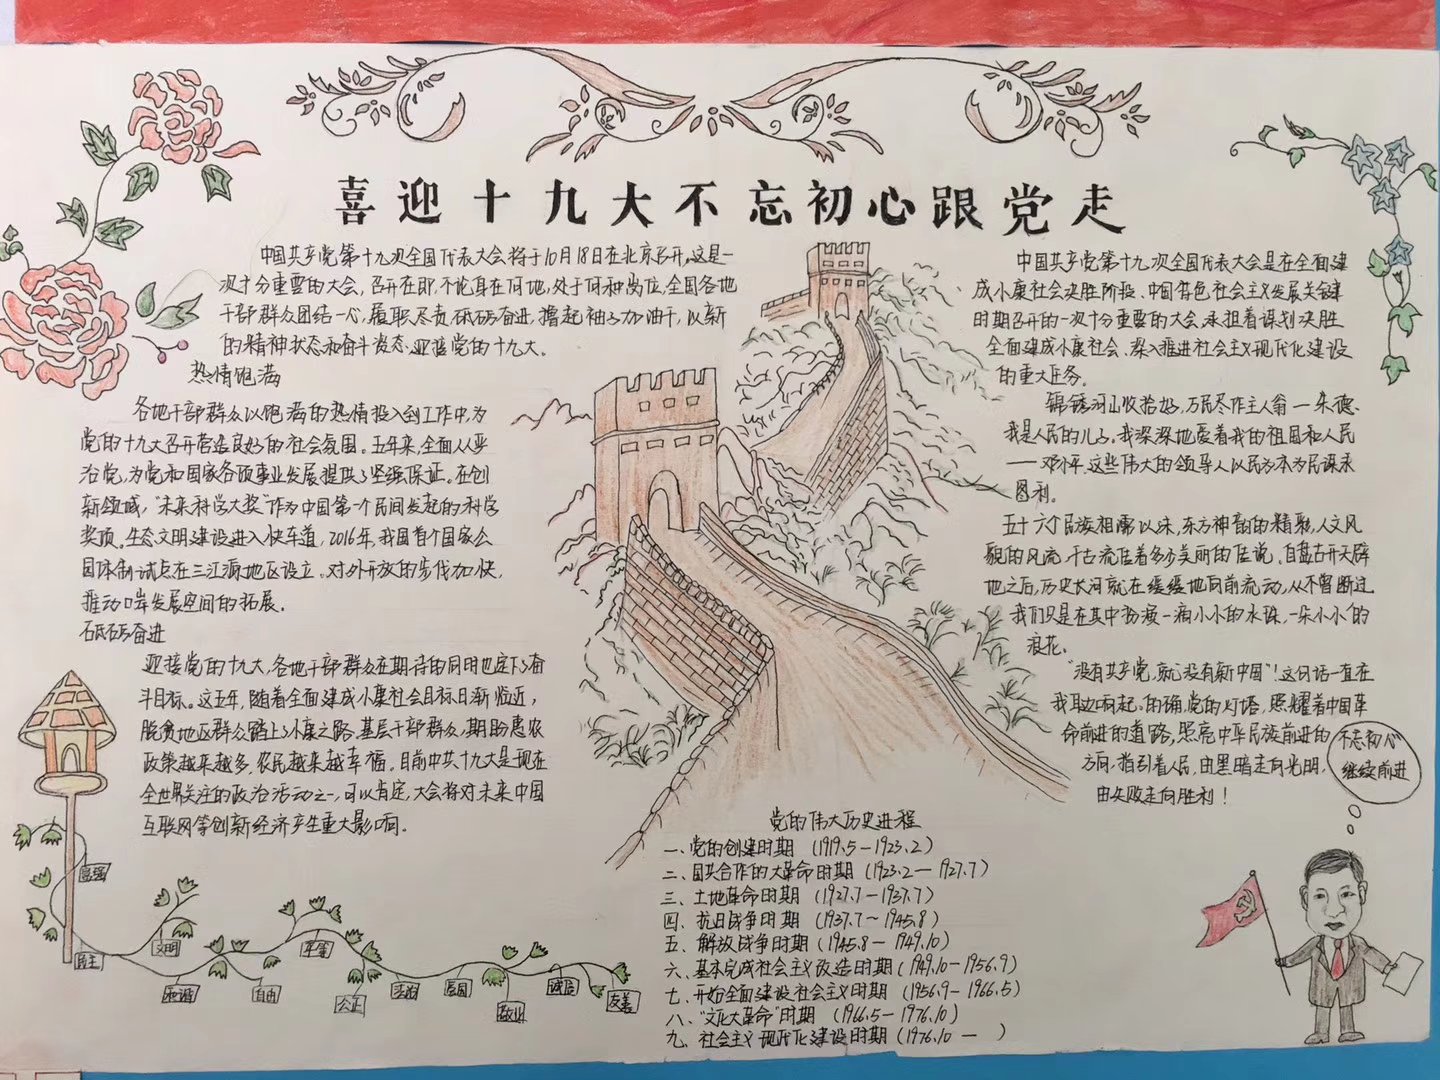 喜迎十九大不忘初心跟党走
中国共产党第十九次全国代表大会将于10月18日在北京召开。这是一
次十分重要的大会，召开在即，不论身在何地，处于何种岗位，全国各地
干部群众团结一心，履职尽责砥砺奋进，撸起袖子加油干，以新
的精神状态和奋斗姿态，迎接党的十九大。
热情饱满
各地干部群众以饱满的热情投入到工作中，为
党的十九大召开营造良好的社会氛围。五年来，全面从严
治党，为党和国家各项事业发展提供了坚强保证。在创
新领域，“未来科学大奖”作为中国第一个民间发起的科学
奖项。生态文明建设进入快车道，2016年，我国首个国家公
园体制试点在三江源地区设立。对外开放的步伐加快，
推动口岸发展空间的拓展。
砥砺奋进
迎接党的十九大，各地干部群众在期待的同时也定下奋
斗目标。这五年，随着全面建成小康社会目标日渐临近，
脱贫地区群众踏上小康之路，基层干部群众，期盼惠农
政策越来越多，农民越来越幸福。目前中共十九大是现在
全世界关注的政治活动之一，可以肯定，大会将对未来中国
互联网等创新经济产生重大影响。
富强
民主
文明
和谐
自由
平等
公正
法治
爱国
敬业
诚信
友善
党的伟大历史进程
一、党的创建时期（1919.5－1923.2）
二、国共合作的大革命时期（1923.2－1927.7）
三、土地革命时期（1927.7－1937.7）
四、抗日战争时期（1937.7~1945.8）
五、解放战争时期（1945.8－1949.10）
六、基本完成社会主义改造时期（1949.10－1956.9）
七、开始全面建设社会主义时期（1956.9－1966.5）
八、“文化大革命”时期（1966.5－1976.10）
九、社会主义现代化建设时期（1976.10－ ）
中国共产党第十九次全国代表大会是在全面建
成小康社会决胜阶段、中国特色社会主义发展关键
时期召开的一次十分重要的大会，承担着谋划决胜
全面建成小康社会、深入推进社会主义现代化建设
的重大任务。
锦绣河山收拾好，万民尽作主人翁－朱德。
我是人民的儿子。我深深地爱着我的祖国和人民
——邓小平，这些伟大的领导人以民为本为民谋求
图利。
五十六个民族相濡以沫，东方神韵的精彩，人文风
貌的风流，千古流传着多少美丽的传说。自盘古开天辟
地之后，历史长河就在缓缓地向前流动，从不曾断过
我们只是在其中扮演一滴小小的水珠，一朵小小的
浪花。
“没有共产党，就没有新中国”！这句话一直在
我耳边响起。的确，党的灯塔，照耀着中国革
命前进的道路，照亮中华民族前进的
方向，指引着人民，由黑暗走向光明，
由失败走向胜利！
不忘初心
继续前进